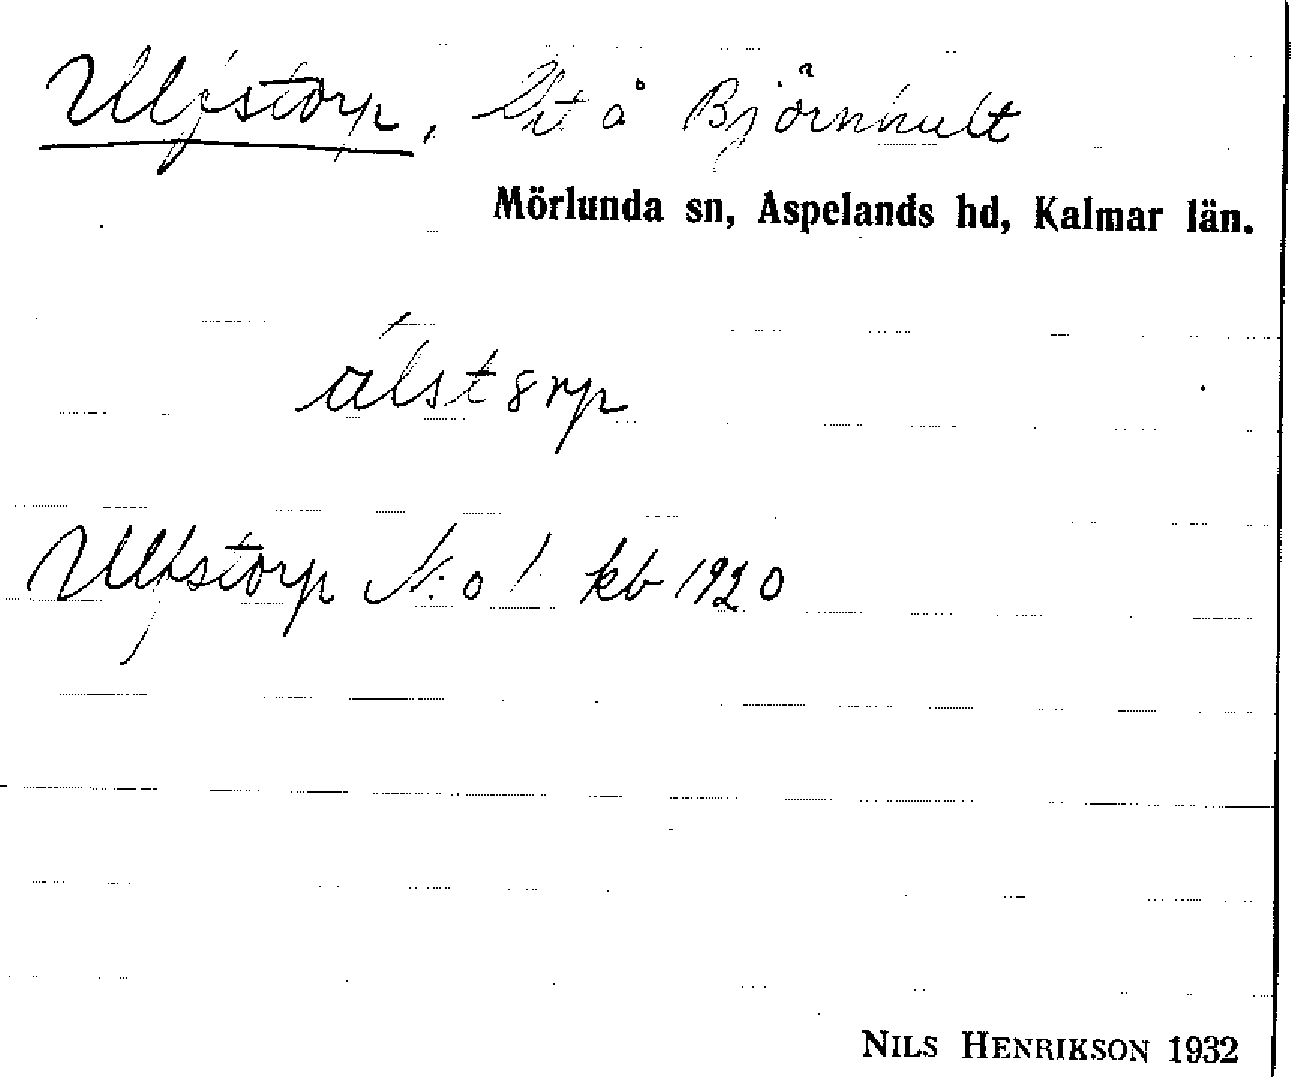 Uljstorp, Lht å Björnhult
Mörlunda sn, Aspelands hd, Kalmar län.
álst8rp
Uljstorp N:o 1 kb 1920
NILS HENRIKSON 1932